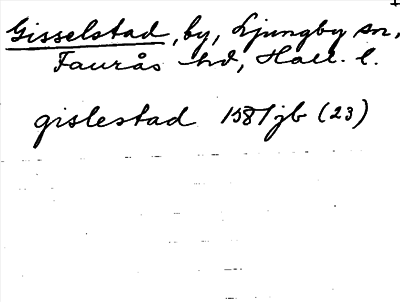 Gisselstad, by, Ljungby sn,
Faurås hd, Hall. l.
gislestad 1581 jb (23)